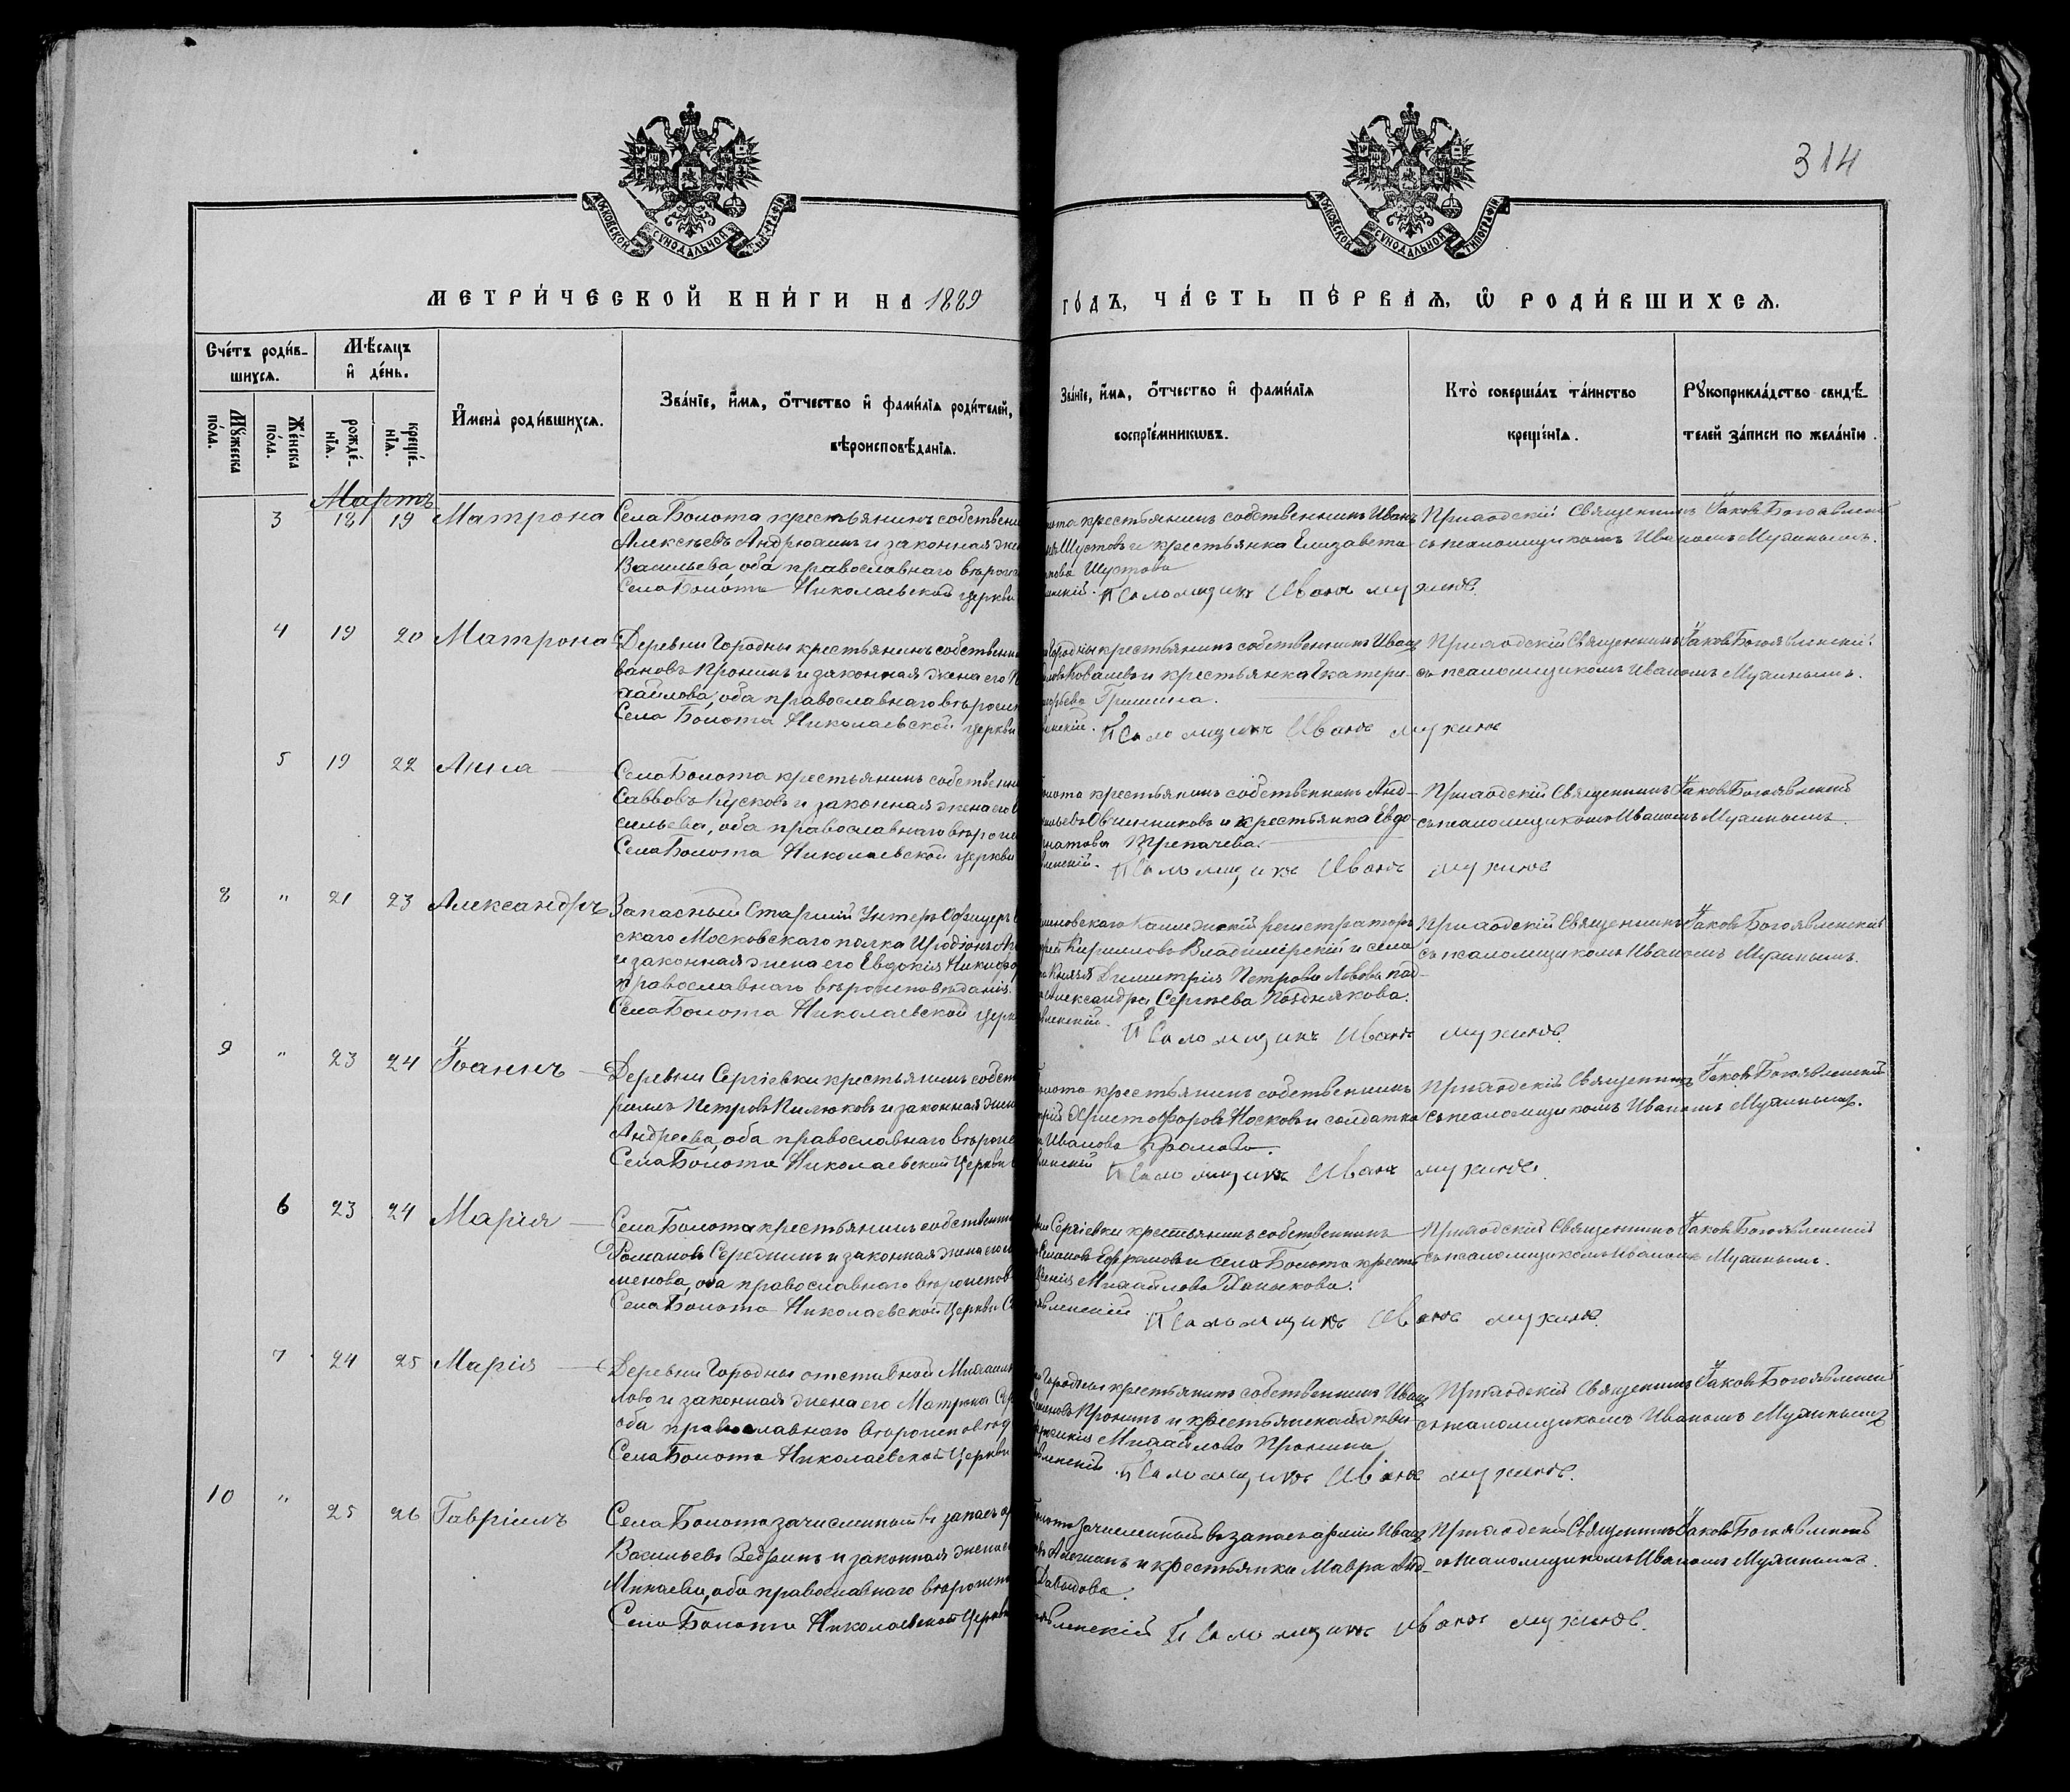 314
МОСКОВСКОЙ СѴНОДАЛЬНОЙ
МОСКОВСКОЙ СѴНОДАЛЬНОЙ ТИПОГРАФІИ
МЕТРИ́ЧЕСКОЙ КНИ́ГИ НА 1889
ГО́ДЪ, ЧА́СТЬ ПЕ́РВАѦ, Ѡ҆ РОДИ́ВШИХСѦ.
Сче́тъ роди́в-
шихсѧ.
Мѣ́сѧцъ
и҆ де́нь.
Мꙋ́жеска
по́ла.
Же́нска
по́ла.
рожде́-
нїѧ.
креще́-
нїѧ.
И҆мена̀ роди́вшихсѧ.
Зва́нїе, и҆́мѧ, о҆́тчество и҆ фами́лїѧ роди́телей,
вѣроисповѣ́данїѧ.
Зва́нїе, и҆́мѧ, о҆́тчество и҆ фами́лїѧ
воспрїе́мникѡвъ.
Кто̀ соверша́лъ та́инство
креще́нїѧ.
Рꙋкоприкла́дство свидѣ́-
телей за́писи по жела́нїю.
Мартъ
3 18 19 Матрона
Села Болота крестьянинъ собствен
Алексѣевъ Андрюхинъ и законная же
Васильева, оба православнаго вѣроис
Села Болота Николаевской церкви
крестьянинъ собственникъ Иванъ
Шустовъ и крестьянка Елизавета
Шустова
Псаломщикъ Иванъ Мухинъ.
Приходскій Священникъ Іаковъ Богоявленскій
съ псаломщикомъ Иваномъ Мухинымъ.
4 19 20 Матрона
Деревни Городны крестьянинъ собственни
вановъ Пронинъ и законная жена его
хайлова, оба православнаго вѣроис
Села Болота Николаевской церкви
Городны крестьянинъ собственникъ Иванъ
Ковалевъ и крестьянка Екатери-
Гришина.
Псаломщикъ Иванъ Мухинъ
Приходскій Священникъ Іаковъ Богоявленскій
съ псаломщикомъ Иваномъ Мухинымъ.
5 19 22 Анна
Села Болота крестьянинъ собственни
Саввовъ Кусковъ и законная жена его
сильева, оба православнаго вѣроис
Села Болота Николаевской церкви
крестьянинъ собственникъ Анд-
Овчинниковъ и крестьянка Евдо-
Трепачева.
Псаломщикъ Иванъ Мухинъ
Приходскій Священникъ Іаковъ Богоявленскій
съ псаломщикомъ Иваномъ Мухинымъ
8 " 21 23 Александръ
Запасный Старшій Унтеръ Офицеръ
скаго Московскаго полка Иродіонъ
и законная жена его Евдокія Никифо
православнаго вѣроисповѣданія.
Села Болота Николаевской церк
регистраторъ
Кириловъ Владимірскій и села
Князя Димитрія Петрова Львова
Александра Сергѣева Позднякова.
Псаломщикъ Иванъ Мухинъ.
Приходскій Священникъ Іаковъ Богоявленскій
съ псаломщикомъ Иваномъ Мухинымъ.
9 " 23 24 Іоаннъ
Деревни Сергіевки крестьянинъ собст
Петровъ Килюковъ и законная жен
Андреева, оба православнаго вѣроис
Села Болота Николаевской Церкви
крестьянинъ собственникъ
Христофоровъ Носковъ и солдатка
Иванова Хромова.
Псаломщикъ Иванъ Мухинъ.
Приходскій Священникъ Іаковъ Богоявленскій
съ псаломщикомъ Иваномъ Мухинымъ.
6 23 24 Марія
Села Болота крестьянинъ собственни
Романовъ Серегинъ и законная жена его
менова, оба православнаго вѣроисповѣ
Села Болота Николаевской Церкви
Сергіевки крестьянинъ собственникъ
Ефремовъ и села Болота кресть
Михайлова Панькова.
Псаломщикъ Иванъ Мухинъ.
Приходскій Священникъ Іаковъ Богоявленскій
съ псаломщикомъ Иваномъ Мухинымъ.
7 24 25 Марія
Деревни Городны отставной Михаилъ
ловъ и законная жена его Матрона Сер
оба православнаго вѣроисповѣд
Села Болота Николаевской Церкви
Городны крестьянинъ собственникъ Иванъ
Пронинъ и крестьянская дѣви-
Михайлова Пронина
Псаломщикъ Иванъ Мухинъ.
Приходскій Священникъ Іаковъ Богоявленскій
съ псаломщикомъ Иваномъ Мухинымъ
10 " 25 26 Гавріилъ
Села Болота зачисленный въ запасъ ар
Васильевъ Ведринъ и законная жена е
Минаева, оба православнаго вѣроиспо
Села Болота Николаевской Церкви
зачисленный въ запасъ арміи Иванъ
Алехинъ и крестьянка Мавра Анд-
Давыдова.
Псаломщикъ Иванъ Мухинъ.
Приходскій Священникъ Іаковъ Богоявленскій
съ псаломщикомъ Иваномъ Мухинымъ.